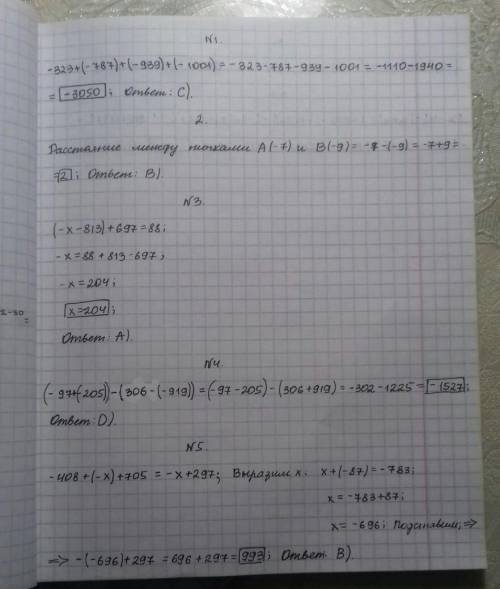 N1.
-323+(-787)+(-939)+(-1001)=-323-787-939-1001=-1110-1940=
= -3050; Ответ: C).
2.
Расстояние между точками A(-7) и B(-9)= -7-(-9)=-7+9=
=2; Ответ: B).
N3.
(-x-813)+697=88;
-x=88+813-697;
-x=204;
x=204;
Ответ: A).
N4.
(-97+(205))-(306-(-919))=(-97-205)-(306+919)=-302-1225=-1527;
Ответ: D).
N5.
-408+(-x)+705=-x+297; Выразим x. x+(-87)=-783;
x=-783+87;
x=-696; Подставим; =>
=> -(-696)+297=696+297=993; Ответ: B).
2-30
=